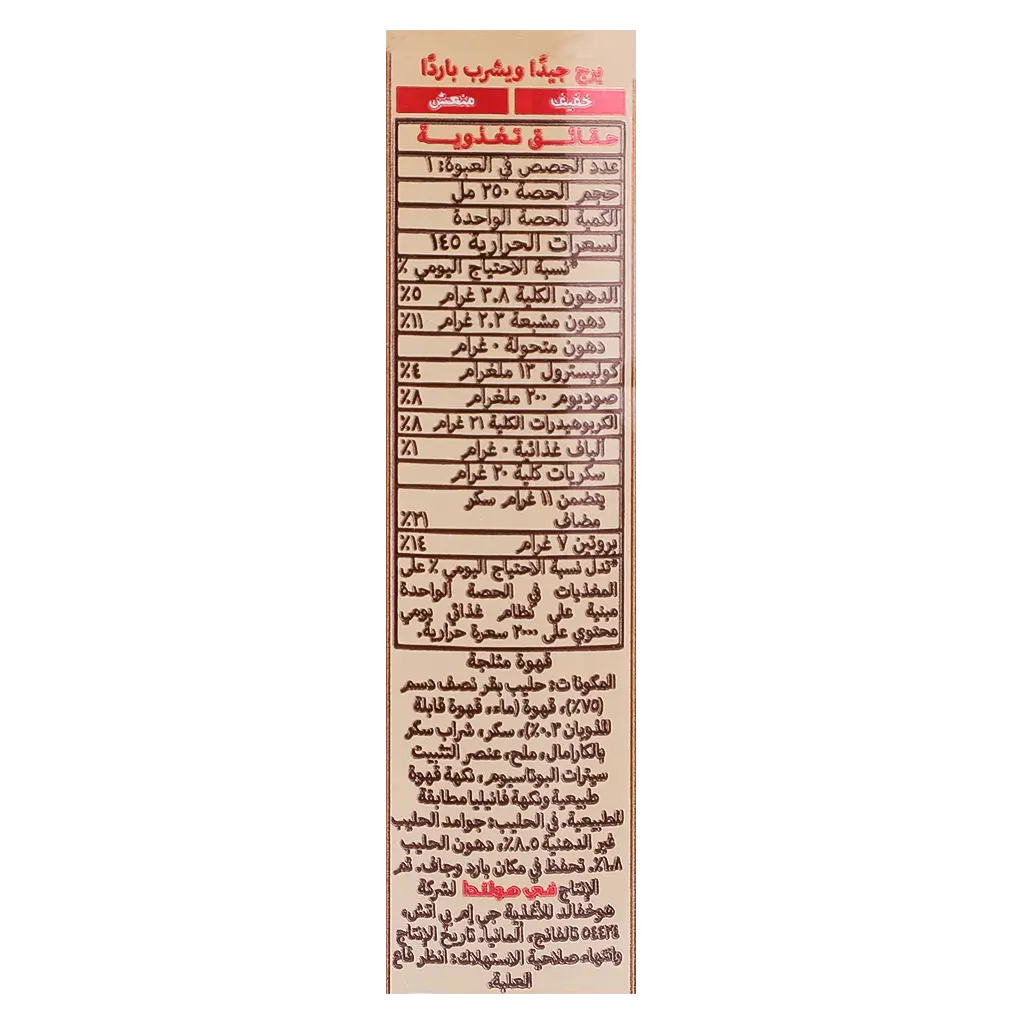 يرج جيدًا ويشرب باردًا
خفيف منعش
حقائق تغذوية
عدد الحصص في العبوة: ١
حجم الحصة ٢٥٠ مل
الكمية للحصة الواحدة
لسعرات الحرارية ١٤٥
*نسبة الاحتياج اليومي ٪
الدهون الكلية ٣.٨ غرام ٥٪
دهون مشبعة ٢.٣ غرام ١١٪
دهون متحولة ٠ غرام
كوليسترول ١٣ ملغرام ٤٪
صوديوم ٢٠٠ ملغرام ٨٪
الكربوهيدرات الكلية ٢١ غرام ٨٪
ألياف غذائية ٠ غرام ١٪
سكريات كلية ٢٠ غرام
يتضمن ١١ غرام سكر
مضاف ٢١٪
بروتين ٧ غرام ١٤٪
*تدل نسبة الاحتياج اليومي ٪ على
المغذيات في الحصة الواحدة
مبنية على نظام غذائي يومي
محتوي على ٢٠٠٠ سعرة حرارية.
قهوة مثلجة
المكونات: حليب بقر نصف دسم
(٧٥٪)، قهوة (ماء، قهوة قابلة
للذوبان ٠.٣٪)، سكر، شراب سكر
بالكارامال، ملح، عنصر التثبيت
سيترات البوتاسيوم، نكهة قهوة
طبيعية ونكهة فانيليا مطابقة
للطبيعية. في الحليب: جوامد الحليب
غير الدهنية ٨.٥٪، دهون الحليب
١.٨٪. تحفظ في مكان بارد وجاف. تم
الإنتاج في هولندا لشركة
هوخفالد للأغذية جي إم بي اتش،
٥٤٤٢٤ تالفانج، ألمانيا. تاريخ الإنتاج
وانتهاء صلاحية الاستهلاك: انظر قاع
العلبة.